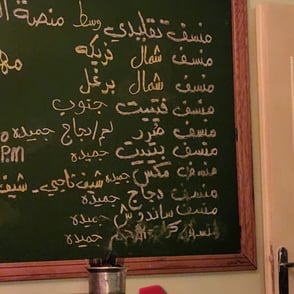 منسف تقليدي وسط منصة
منسف شمال فريكه
منسف شمال برغل
منسف فتيت جنوب
منسف ثرد لحم/دجاج جميده
منسف جميده PM
منسف مكس جميده شيف ناجي - شيف
منسف دجاج جميده
منسف ساندوش جميده
منسف جميده